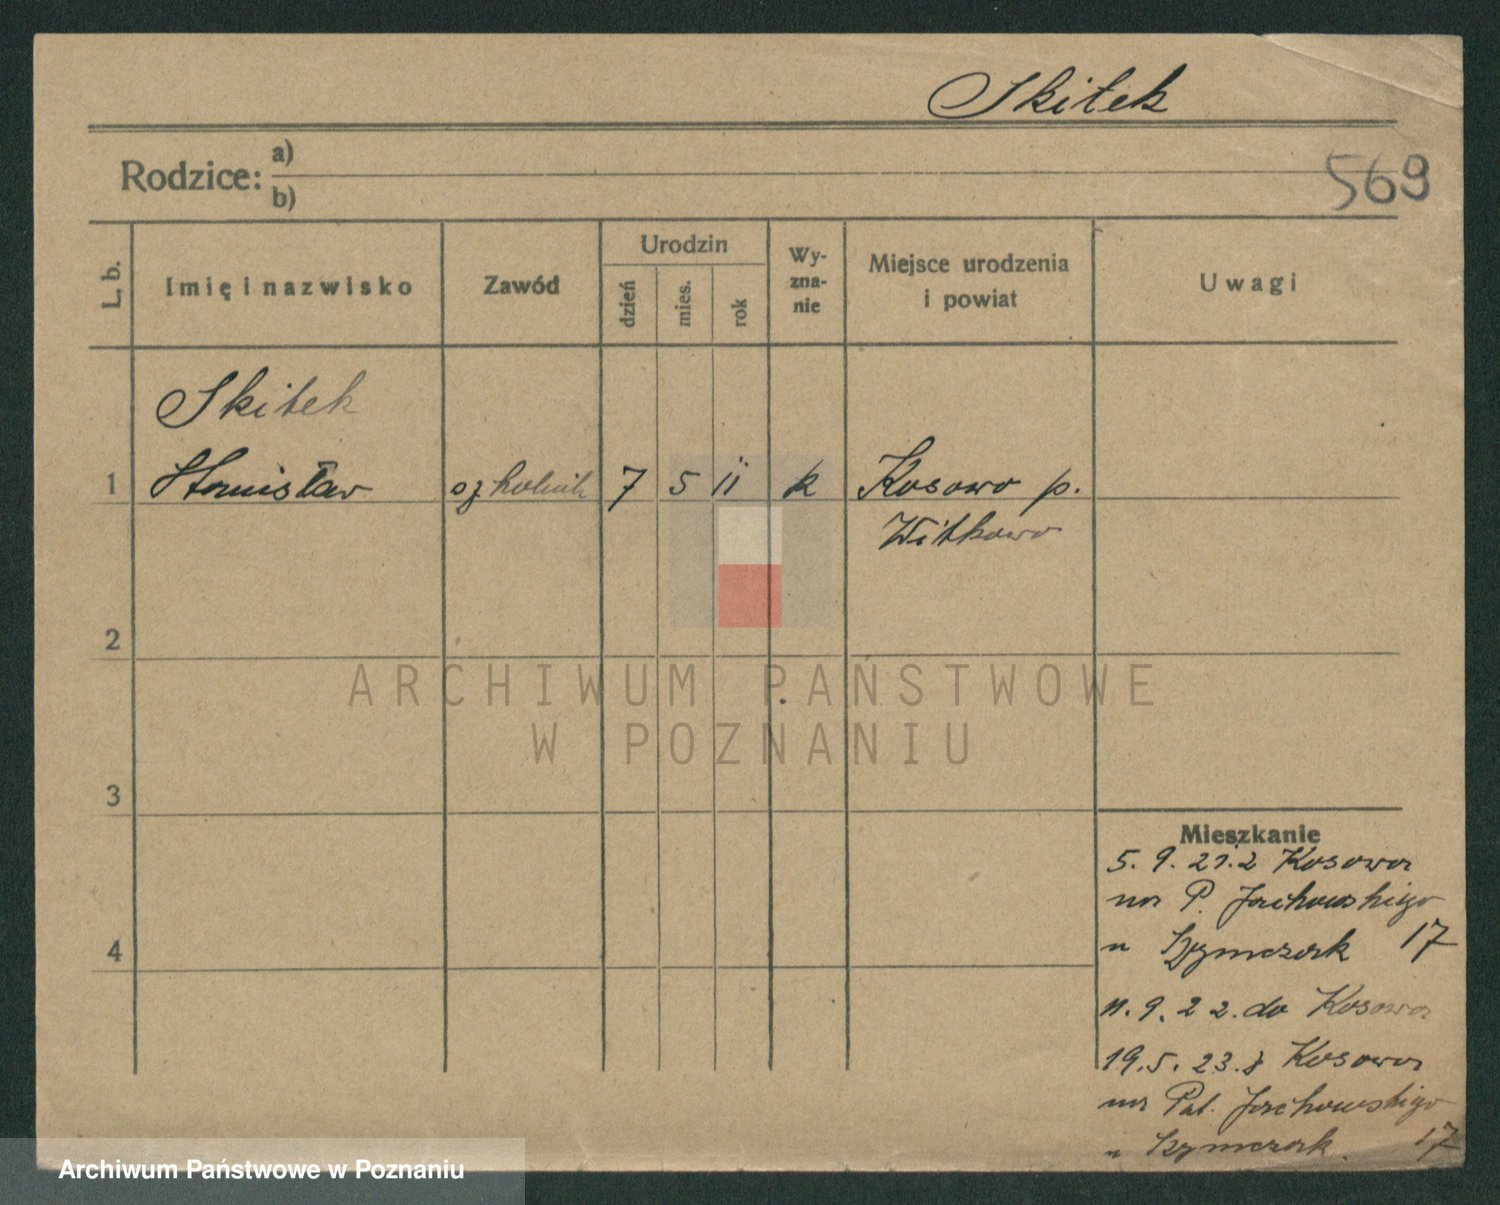 Skitek
Rodzice: a)
b)
569
L. b.
Imię i nazwisko
Zawód
Urodzin
dzień
mies.
rok
Wy-
zna-
nie
Miejsce urodzenia
i powiat
Uwagi
Skitek
1 Stanisław szkolnik 7 5 11 k Kosowo p.
Witkowo
2
ARCHIWUM PAŃSTWOWE
W POZNANIU
3
Mieszkanie
5. 9. 21. z Kosowa
na P. Jachowskiego
u Szymczak 17
4
11. 9. 22. do Kosowa
19. 5. 23. z Kosowa
na Pat. Jachowskiego
u Szymczak. 17
Archiwum Państwowe w Poznaniu